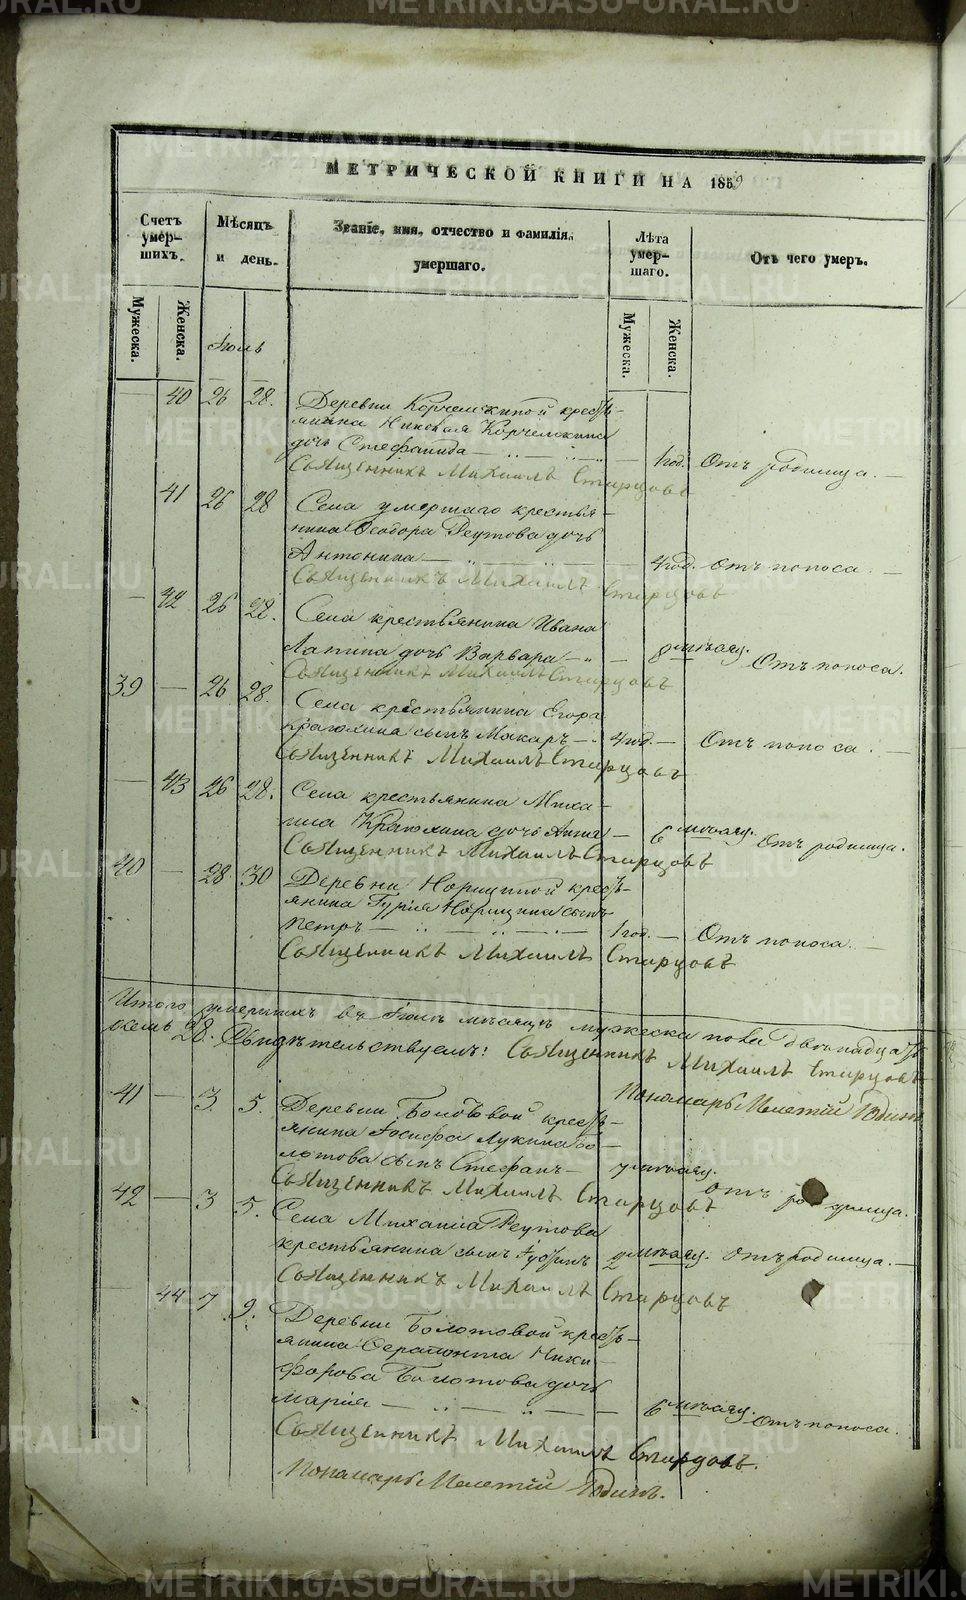 METRIKI.GASO-URAL.RU
МЕТРИЧЕСКОЙ КНИГИ НА 1859
Счетъ умер-шихъ.
Мѣсяцъ и день.
Званіе, имя, отчество и фамилія умершаго.
Лѣта умер-шаго.
Отъ чего умеръ.
Мужеска.
Женска.
Мужеска.
Женска.
Іюль
— 40 26 28. Деревни крестъ-
янина Николая
дочь Стефанида — 1 год. Отъ родимца. —
Священникъ Михаилъ Старцовъ
41 26 28 Села умершаго крестья-
нина Ѳеодора Реутова дочь
Антонина — 4 год. Отъ поноса. —
Священникъ Михаилъ Старцовъ
— 42 26 28. Села крестьянина Ивана
Лапина дочь Варвара — " — 8 мѣсяц. Отъ поноса.
Священникъ Михаилъ Старцовъ
39 — 26 28. Села крестьянина Егора
сынъ Макаръ — 4 год. — Отъ поноса. —
Священникъ Михаилъ Старцовъ
— 43 26 28. Села крестьянина Миха-
ила дочь Анна — 6 мѣсяц. Отъ родимца.
Священникъ Михаилъ Старцовъ
40 — 28 30 Деревни Норициной кресть-
янина Гурія Норицина сынъ
Петръ — 1 год. — Отъ поноса. —
Священникъ Михаилъ Старцовъ
Итого умершихъ въ Іюлѣ мѣсяцѣ мужеска пола двенадцать
28. Свидѣтельствуемъ: Священникъ Михаилъ Старцовъ
Пономарь Мелетій
41 — 3 5. Деревни Болотовой кресть-
янина Іосифа Лукина Бо-
лотова сынъ Стефанъ — 7 мѣсяц.
Отъ родимца.
Священникъ Михаилъ Старцовъ
42 — 3 5. Села Михаила Реутова
крестьянина сынъ 2 мѣсяц. Отъ родимца. —
Священникъ Михаилъ Старцовъ
— 44 7 9. Деревни Болотовой кресть-
янина Серапіонта Ники-
форова Болотова дочь
Марія — 6 мѣсяц. Отъ поноса.
Священникъ Михаилъ Старцовъ.
Пономарь Мелетій